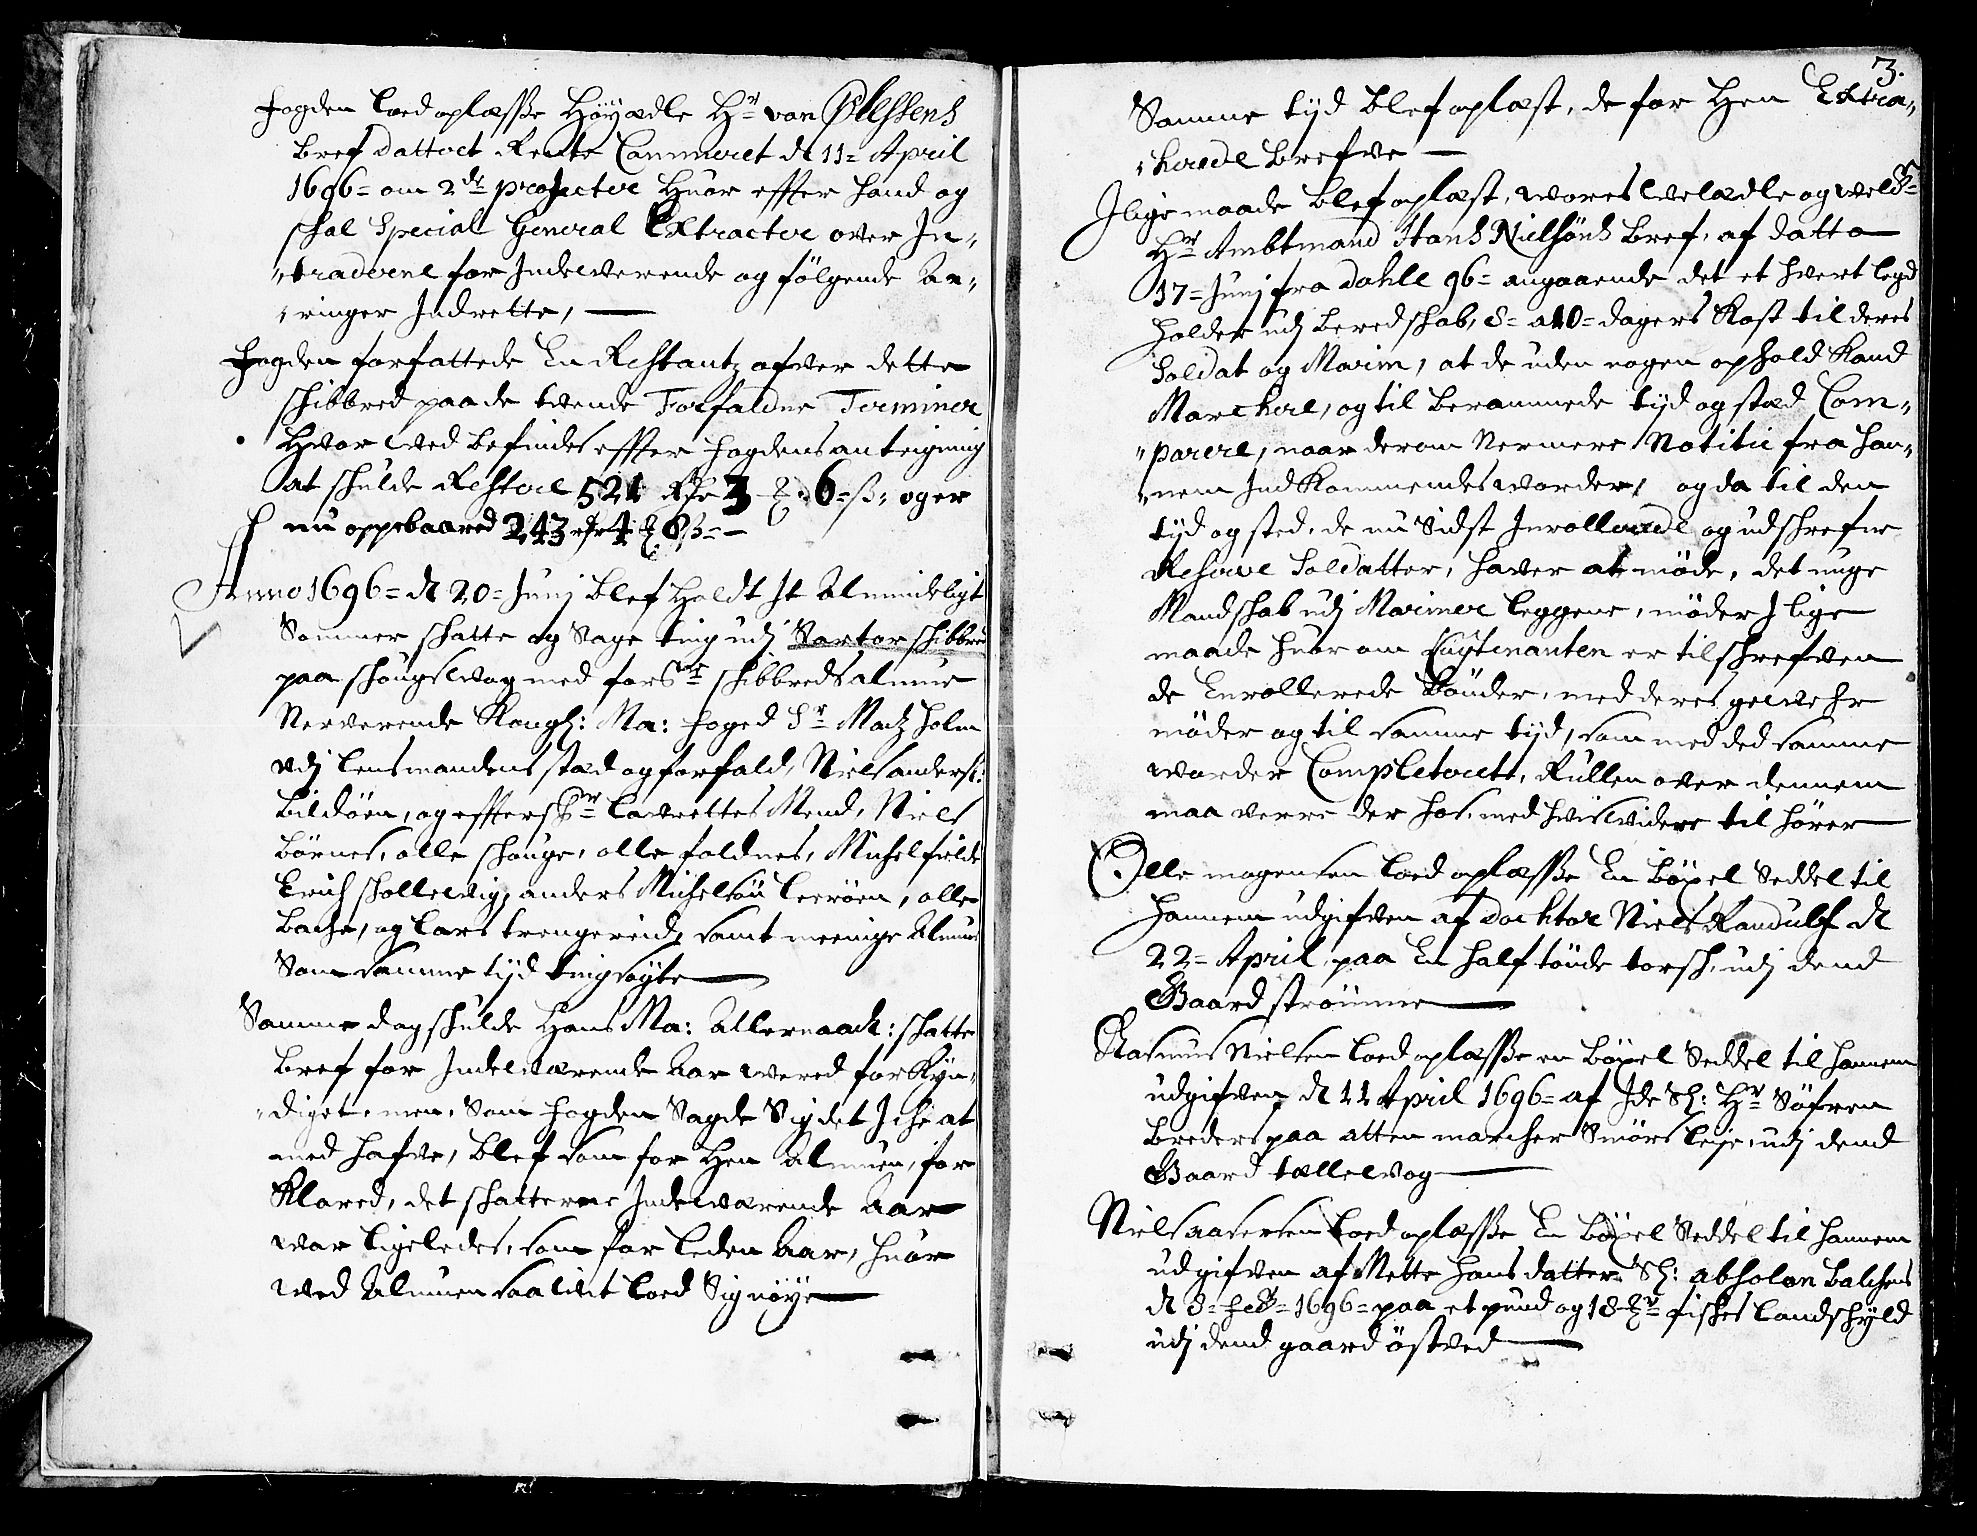 fogden loed oplæsse Høyædle Hr von Plessens
bref datteret Rente Cammeret d 11= April
1696= om 2de projecter huor effter hand og
schal Special General Extracter over In„
„traderne for Indeverende og følgende Aa„
„ringer Indrette,
fogden forfattede En Restantz ofver dette
schibbred paa de tvende Forfaldne Terminer
Hvor ved befindes effter fogdens anteigning
at schulde Restere 521 Rdr 3 6 ß: og er
nu oppebaared 243 rdr 4 8 ß=
Anno 1696= d 20= Junj blef holdt It Almindeligt
Sommer schatte og Sage ting udj Sartor schibbred
paa schougsvog med forschr schibbreds almue
Nerverende Kongl: Ma: foged Sr Madtz holm
udj lensmandens stæd og forfald, Niels anders:
bildöen, og effterschr lavrettes Mend, Niels
börnes, olle schouge, olle foldnes, Michel fielde
Erich schollevig, anders Michelsön leröen, olle
bache, og lars trengereid, samt meenige Almue
Som samme tijd ting sögte
Samme dag schulde Hans Ma: Allernaad: schatte
bref for Indeværende Aar vered forkyn„
„diget, men, Som fogden Sagde Sig det Iche at
med hafve, blef som for hen Almuen, for
Klared, det schatterne Indeværende Aar
var ligeledes, som for leden Aar, huor
ved Almuen saa lict loed Sig nöye
3.
Samme tijd blef oplæst, de for hen Extra„
„herede brefve
Ilige maade blef oplæst, vores velædle og velbr
Hr Ambtmand Hans Nielsöns bref, af datto
17= Junj fra dahle 96= angaaende det et hvert legd
holder udj beredschab, 8= a 10= dagers Kost til deres
Soldat og Marin, at de uden nogen ophold Kand
Marchere, og til berammede tijd og stæd Com„
„parere, naar derom Nermere Notitie fra han„
„nem Ind Kommendes vorder, og da til den
tijd og sted, de nu Sidst Inrollerede og udschrefne
Reserve Soldatter, haver at möde, det unge
Mandschab udj Mariner leggene, möder I lige
maade huor om Leutenanten er tilschrefven
de Enrollerede bönder, med deres gevehr
möder og til samme tijd, som med ded samme
vorder Completerett, Rullen over dennem
maa verre der hos, med hvis videre til hörer
Olle mogensen loed oplæsse En böxel Seddel til
hannem udgifven af docktor Niels Randulf d
22= April, paa En half tönde torsch, udj dend
Gaard strömme
Rasmus Nielsen loed oplæsse en böxel Seddel til hannem
udgifven d 11 April 1696= af Ide Sl: Hr Söfren
breders paa atten marcher Smörs leje, udj dend
Gaard tællevog
Niels aasersen loed oplæsse En böxel Seddel til hannem
udgifven af Mette hans datter Sl: absolon balchens
d 3= feb= 1696= paa et pund og 18 fiskes landschyld
udj dend gaard östved